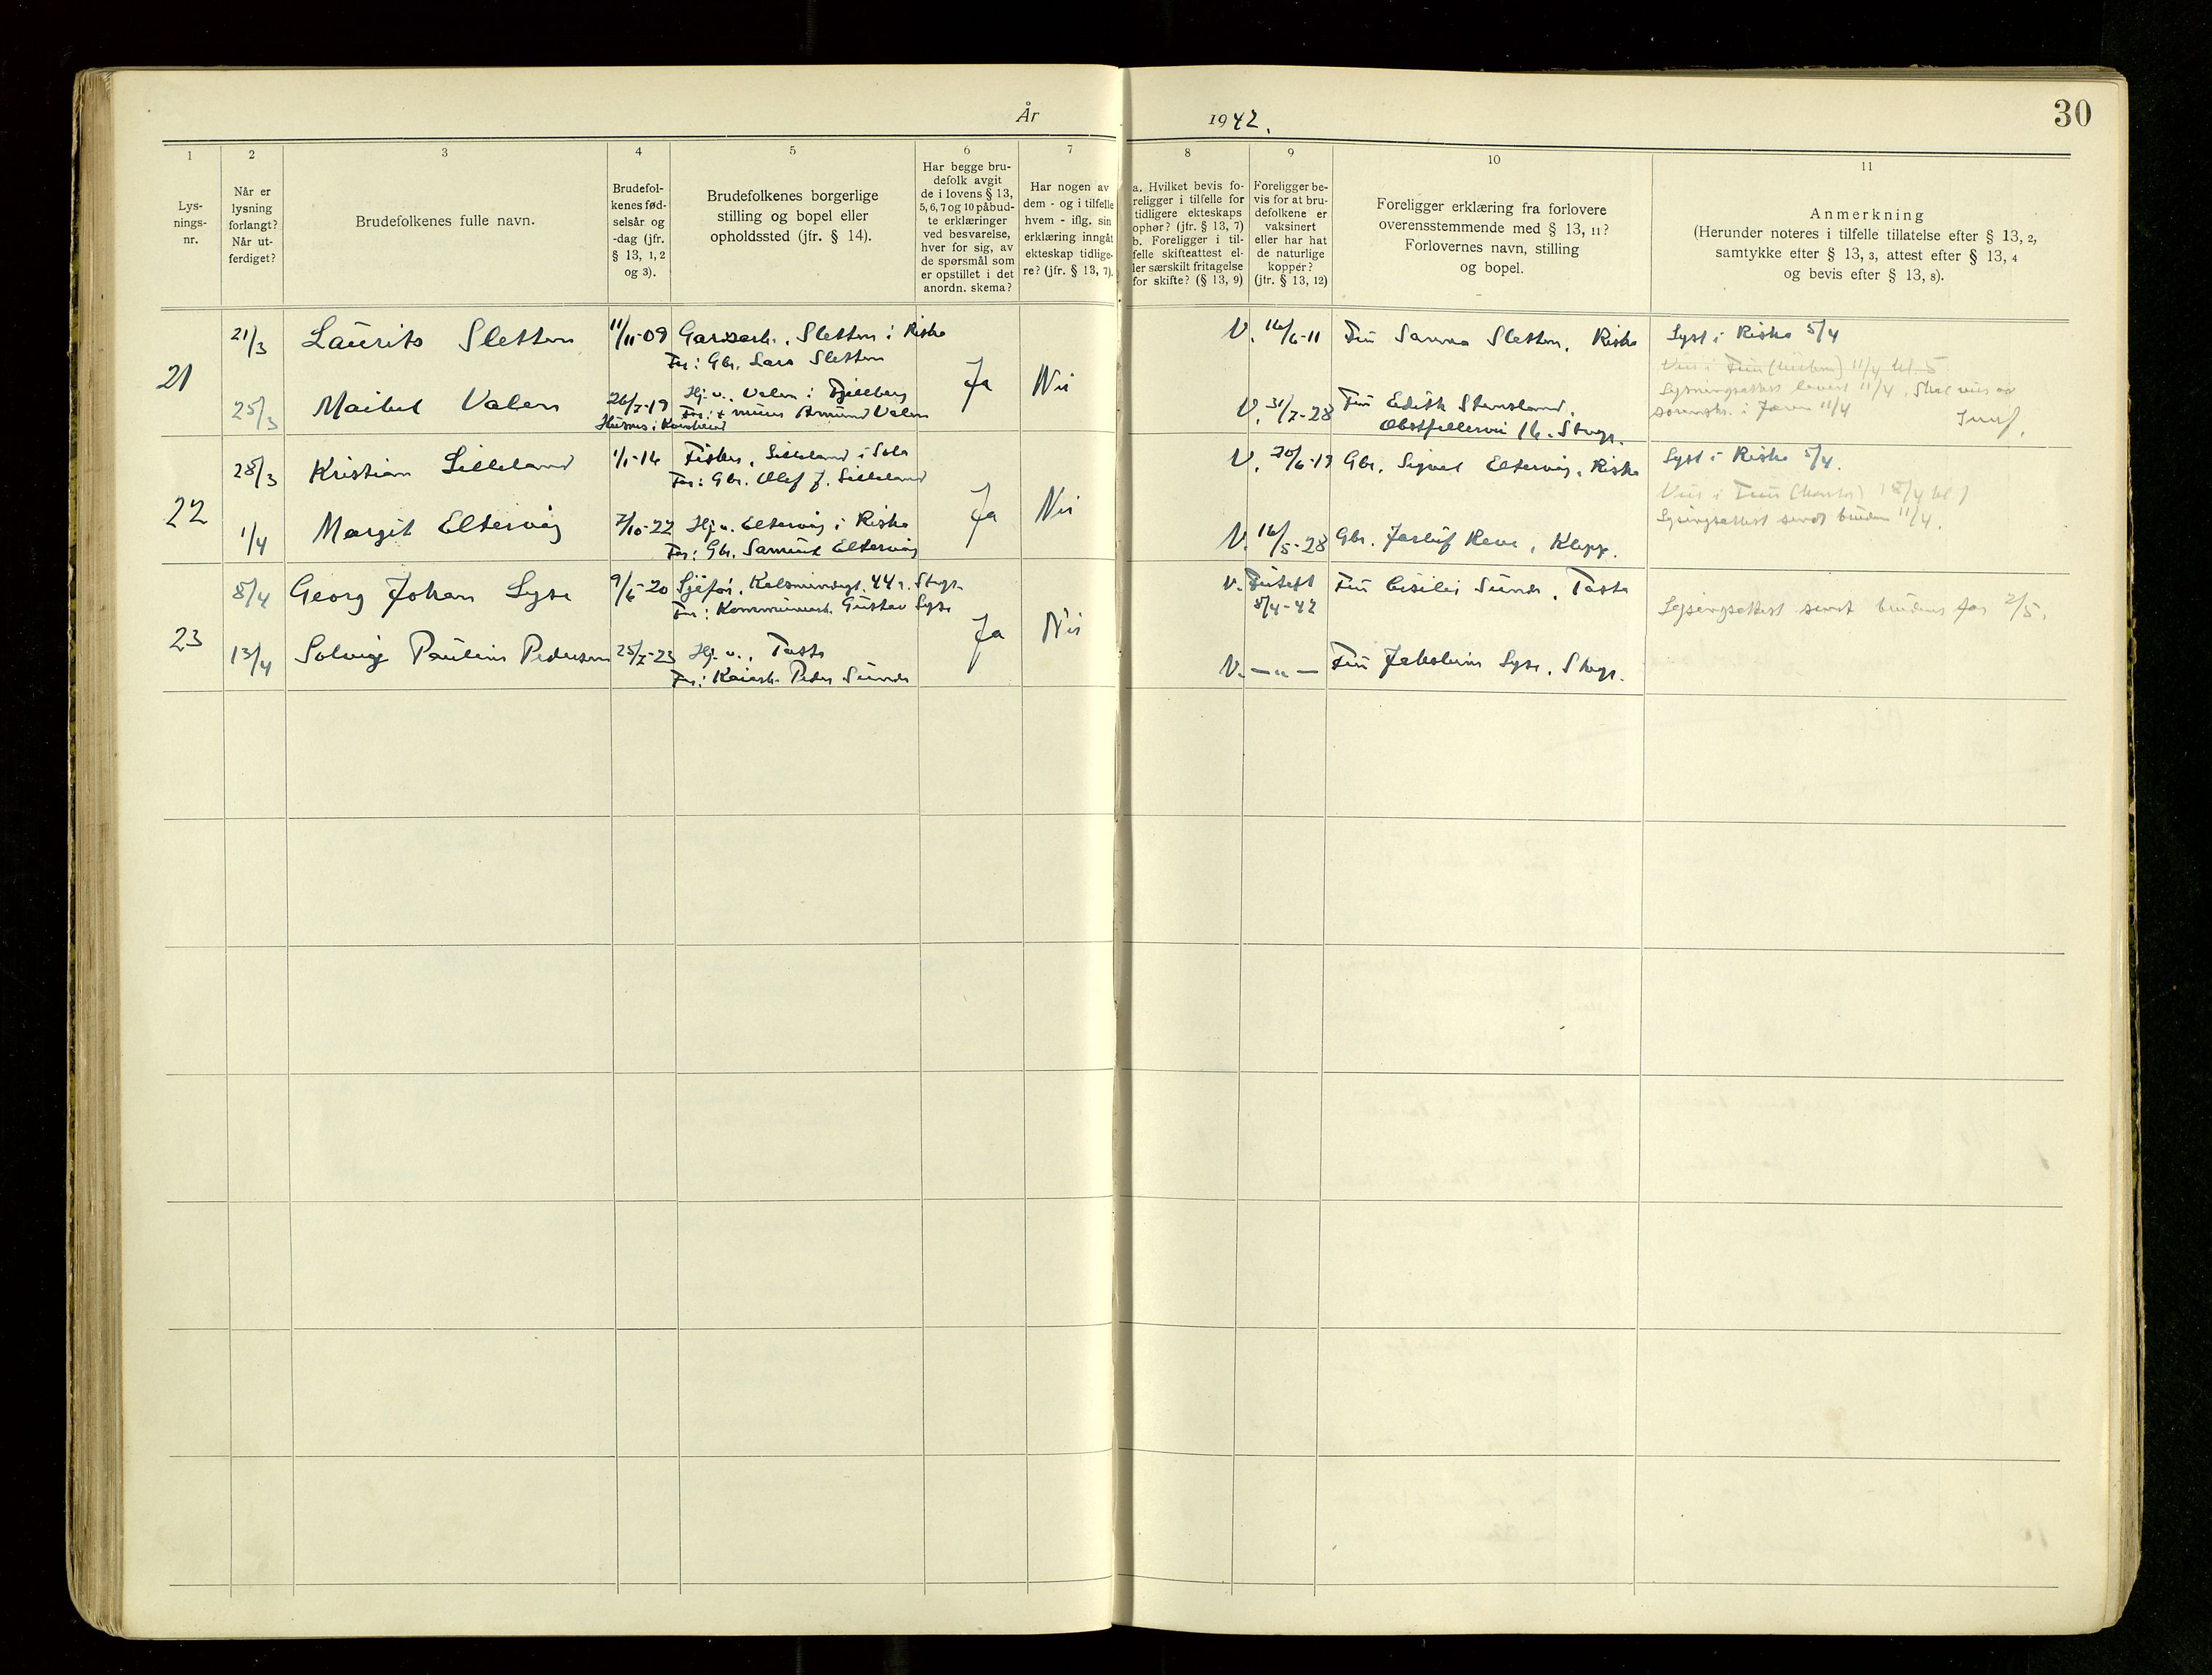 År 1942.
30
1
Lys-
nings-
nr.
2
Når er
lysning
forlangt?
Når ut-
ferdiget?
3
Brudefolkenes fulle navn.
4
Brudefol-
kenes fød-
selsår og
-dag (jfr.
§ 13, 1, 2
og 3).
5
Brudefolkenes borgerlige
stilling og bopel eller
opholdssted (jfr. § 14).
6
Har begge bru-
defolk avgit
de i lovens § 13,
5, 6, 7 og 10 påbud-
te erklæringer
ved besvarelse,
hver for sig, av
de spørsmål som
er opstillet i det
anordn. skema?
7
Har nogen av
dem - og i tilfelle
hvem - iflg. sin
erklæring inngåt
ekteskap tidlige-
re? (jfr. § 13, 7).
8
a. Hvilket bevis fo-
religger i tilfelle for
tidligere ekteskaps
ophør? (jfr. § 13, 7)
b. Foreligger i til-
felle skifteattest el-
ler særskilt fritagelse
for skifte? (§ 13, 9)
9
Foreligger be-
vis for at bru-
defolkene er
vaksinert
eller har hat
de naturlige
kopper?
(jfr. § 13, 12)
10
Foreligger erklæring fra forlovere
overensstemmende med § 13, 11?
Forlovernes navn, stilling
og bopel.
11
Anmerkning
(Herunder noteres i tilfelle tillatelse efter § 13, 2,
samtykke efter § 13, 3, attest efter § 13, 4
og bevis efter § 13, 8).
21
21/3
Laurits Sletten
11/11-09
Gardsarb., Sletten i Riska
Far: Gbr. Lars Sletten
25/3
Maibel Valen
26/7-19
Hj. v., Valen i Fjellberg
Far: + murer Amund Valen
Husnes i Kvinnherad
Ja
Nei
V. 16/6-11
Fru Sanna Sletten, Riska
V. 31/7-28
Fru Edith Stensland,
16, Stvgr.
Lyst i Riska 5/4
Vies i Frue 11/4 kl. 5
Lysningsattest levert 11/4. Skal vies av
sorenskr. i Jæren 11/4
22
28/3
Kristian Lilleland
1/1-16
Fisker, Lilleland i Sola
Far: Gbr. Olaf J. Lilleland
1/4
Margit Eltervåg
7/10-22
Hj. v. Eltervåg i Riska
Far: Gbr. Samuel Eltervåg
Ja
Nei
V. 30/6-19
Gbr. Sigval Eltervåg, Riska
V. 16/5-28
Gbr. Reve, Klepp.
Lyst i Riska 5/4.
Lysingsattest sendt bruden 11/4.
23
8/4
Georg Johan Lyse
9/6-20
Sjåfør, 44, Stvgr.
Far: Kommunearb. Gustav Lyse
13/4
Solveig Pauline Pedersen
25/7-23
Hj. v., Tasta
Far: Kaiarb. Peder Sunde
Ja
Nei
V. Attest
8/4-42
Fru Cisilie Sunde, Tasta
V. — " —
Fru Jakobine Lyse, Stvgr.
Lysingsattest sendt brudens far 2/5.